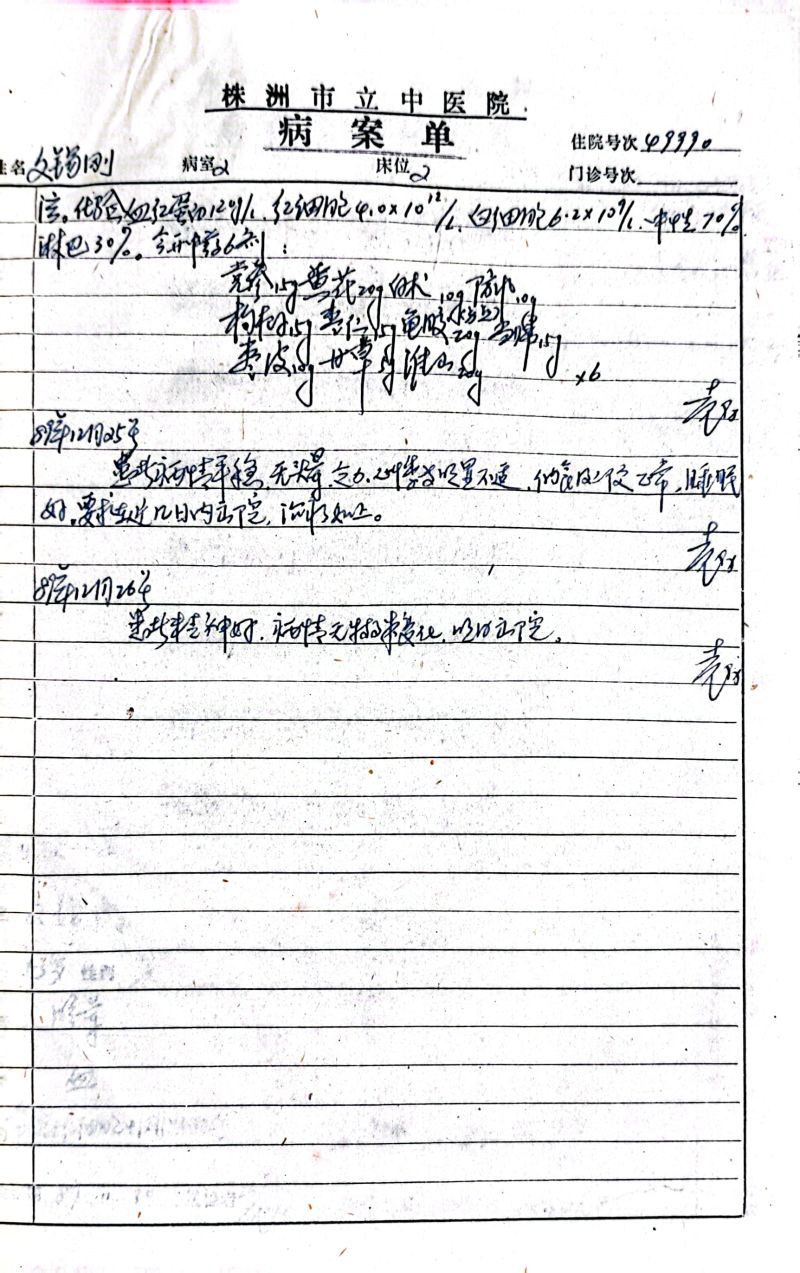 株洲市立中医院
病案单
住院号次 49990
姓名 文锡刚 病室 2 床位 2 门诊号次
法。化验:血红蛋白120g/L、红细胞4.0×10¹²/L、白细胞6.2×10⁹/L、中性70%
淋巴30%。今用中药6剂:
党参15g 黄芪20g 白术10g 防风10g
枸杞15g 枣仁15g 龟胶20g 当归15g
枣皮10g 甘草5g 淮山20g ×6
袁
89年12月25号
患者病情平稳,无头晕乏力、心悸等明显不适,纳食及二便正常,睡眠
好,要求在近几日内出院,治疗如上。
袁
89年12月26号
患者精神好,病情无特殊变化,明日出院。
袁